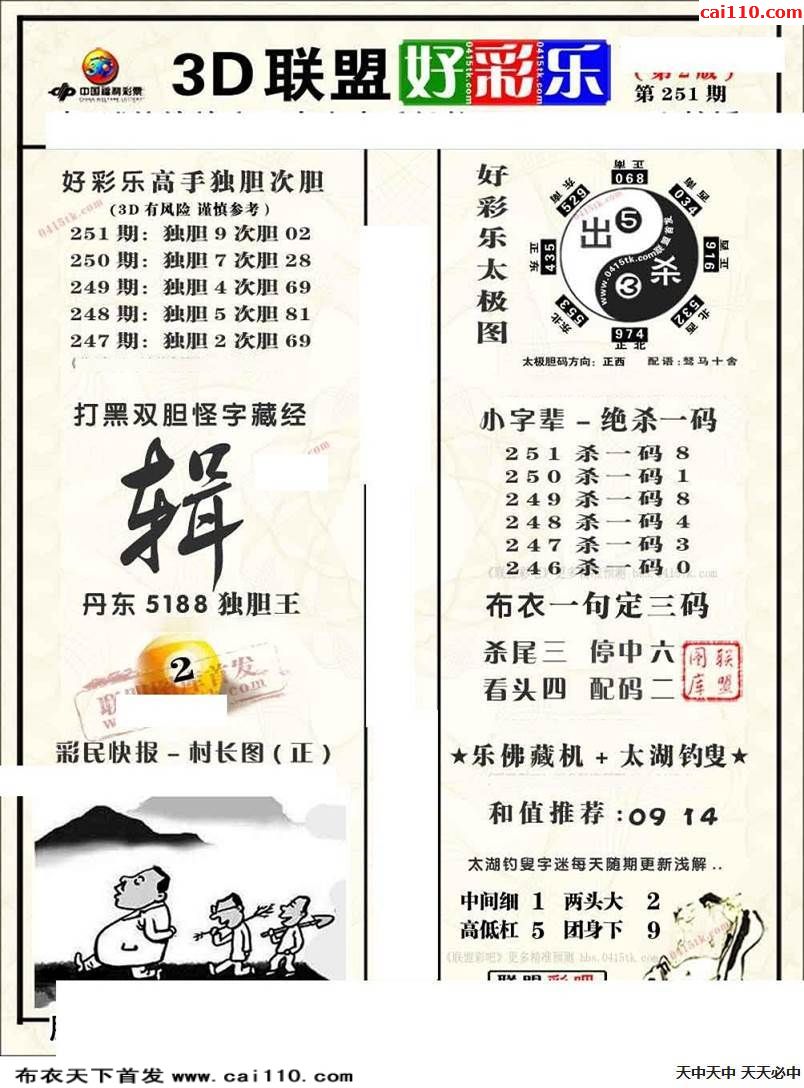 cai110.com
中国福利彩票
CHINA WELFARE LOTTERY
3D联盟 好彩乐
0415tk.com
0415tk.com
(第2版)
第251期
好彩乐高手独胆次胆
(3D有风险 谨慎参考)
0415tk.com
251期：独胆9次胆02
250期：独胆7次胆28
249期：独胆4次胆69
248期：独胆5次胆81
247期：独胆2次胆69
打黑双胆怪字藏经
辑
丹东5188独胆王
2
彩民快报-村长图(正)
好彩乐太极图
正南
068
东南
529
西南
034
正东
435
正西
916
东北
553
西北
532
974
正北
出5
3杀
www.0415tk.com联盟首发
太极胆码方向：正西 配语：驽马十舍
小字辈-绝杀一码
251杀一码8
250杀一码1
249杀一码8
248杀一码4
247杀一码3
246杀一码0
《联盟彩吧》更多精准预测 bbs.0415tk.com
布衣一句定三码
杀尾三 停中六
看头四 配码二
联盟图库
★乐佛藏机+太湖钓叟★
和值推荐:09 14
太湖钓叟字迷每天随期更新浅解..
中间细 1 两头大 2
高低杠 5 团身下 9
《联盟彩吧》更多精准预测 bbs.0415tk.com
联盟彩吧
布衣天下首发www.cai110.com
天中天中 天天必中